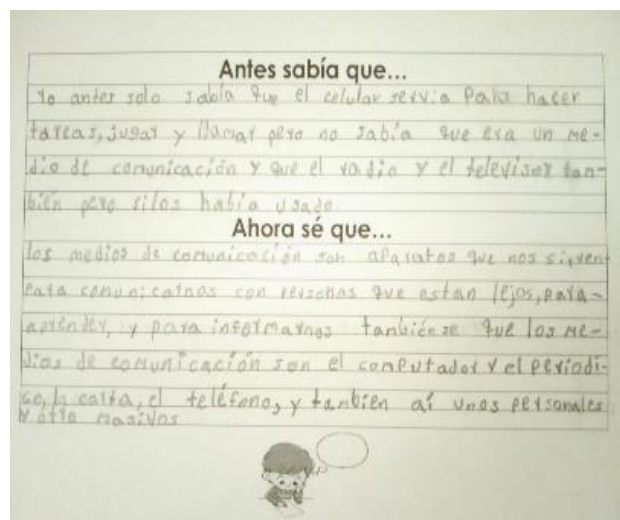 Antes sabía que...
Yo antes solo sabía que el celular servia para hacer
tareas, jugar y llamar pero no sabía que era un me-
dio de comunicación y que el radio y el televisor tan-
bién pero silos había usado.
Ahora sé que...
los medios de comunicación son aparatos que nos sirven
para comunicarnos con personas que estan lejos, para-
aprender, y para informarnos tanbiénse que los me-
dios de comunicación son el computador y el periodi-
co, la carta, el teléfono, y tanbien aí unos personales
y otro masivos